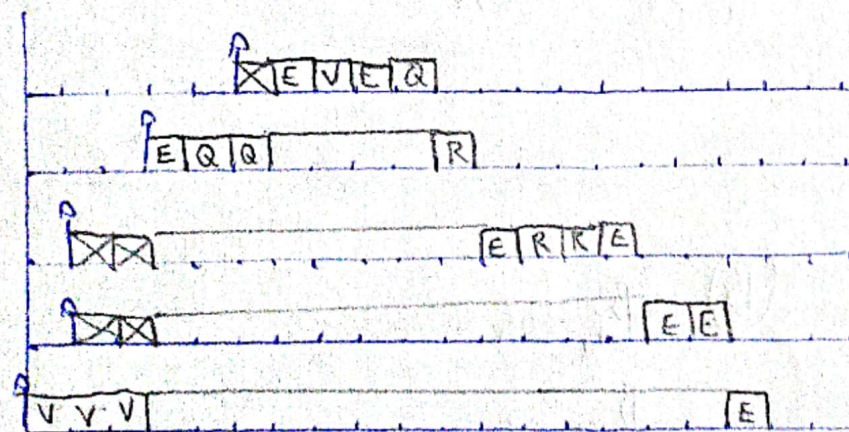 E V E Q
E Q Q R
E R R E
E E
V V V E